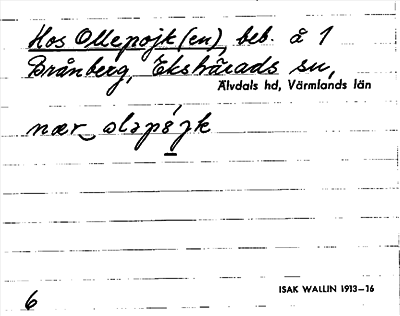 Hos Ollepojk (en), beb. å 1
Brånberg, Ekshärads sn,
Älvdals hd, Värmlands län
nær‿oləpo̱jk
ISAK WALLIN 1913–16
6